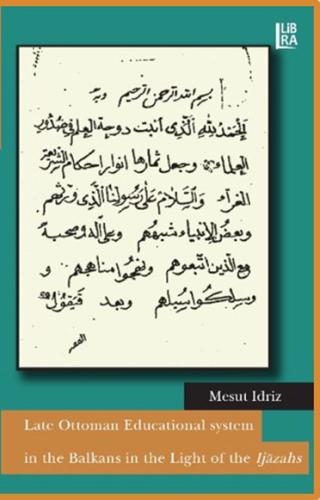 LiB
RA
بسم الله الرحمن الرحيم وبه
الحمد لله الذي أنبت دوحة العلم في صدور
العلماء وجعل ثمارها أنوار أحكام الشريعة
الغراء والسلام على رسولنا الذي
وبعض الأنبياء شبههم وعلى آله وصحبه
مع الذين اتبعوهم ونهجوا مناهجهم و
وسلكوا سبيلهم وبعد فيقول
الفقير
Mesut Idriz
Late Ottoman Educational system
in the Balkans in the Light of the Ijāzahs